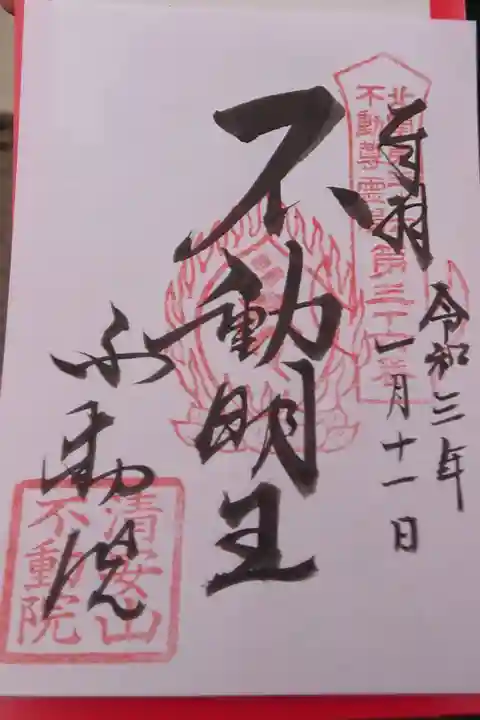 奉拝
令和三年
一月十一日
北関東三十六
不動尊霊場第三十番
不動明王
不動院
清安山
不動院